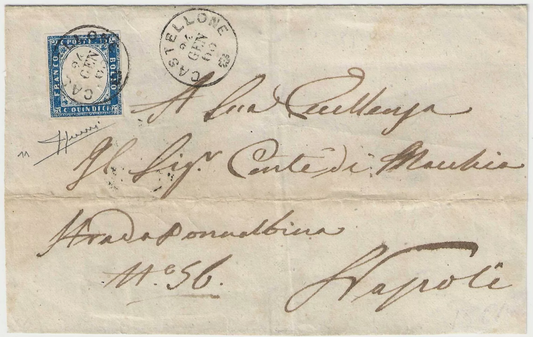 CASTELLONE
24
GEN
63
FRANCO
C POSTE
BOLLO
C QUINDICI
A Sua Eccellenza
Il Sigr. Conte di Macchia
Strada Donnalbina
No. 56.
Napoli